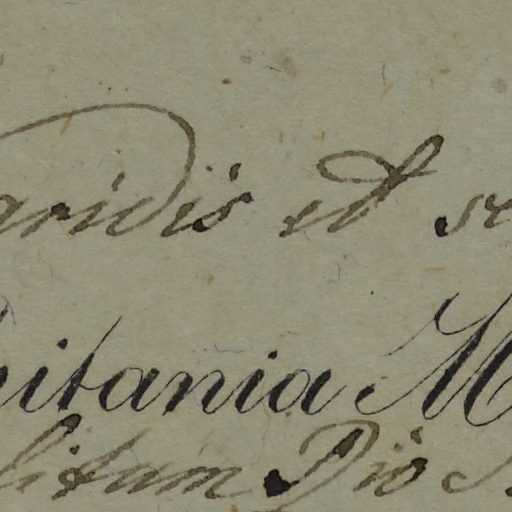 aridis et se
itania M
litum. Dio